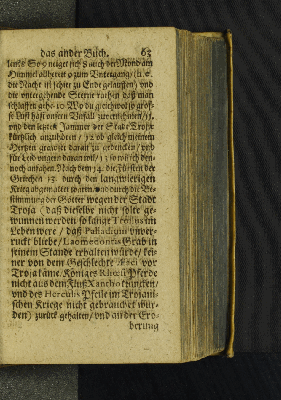 das ander Buch. 63
lens? So 9 neiget sich 8 auch der Mond am
Himmel allbereit 9 zum Untergang/ (i. e.
die Nacht ist schier zu Ende gelauffen) und
die untergehende Sterne rathen daß man
schlaffen gehe. 10 Wo du gleichwol so gros-
se Lust hast unsern Unfall zu erfahren/ 11.
und den letzten Jammer der Stadt Troja
kürtzlich anzuhören / 12 ob gleich meinem
Hertzen grauset daran zu gedencken/ und
für Leid wegen daran wil/ 13 so wil ich den-
noch anfahen. Nach dem 14. die Fürsten der
Griechen 15 durch den langwierigen
Krieg abgemattet waren/ und durch die Be-
stimmung der Götter wegen der Stadt
Troja / daß dieselbe nicht solte ge-
wunnen werden so lange Troilus im
Leben were / daß Palladium unver-
ruckt bliebe/ Laomedontis Grab in
seinem Stande erhalten würde/ kei-
ner von dem Geschlechte Æaci vor
Troja käme. Königes Rhœsi Pferde
nicht aus dem Fluß Xantho trüncken/
und des Herculis Pfeile im Trojani-
schen Kriege nicht gebrauchet wür-
den) zurück gehalten/ und an der Ero-
berung